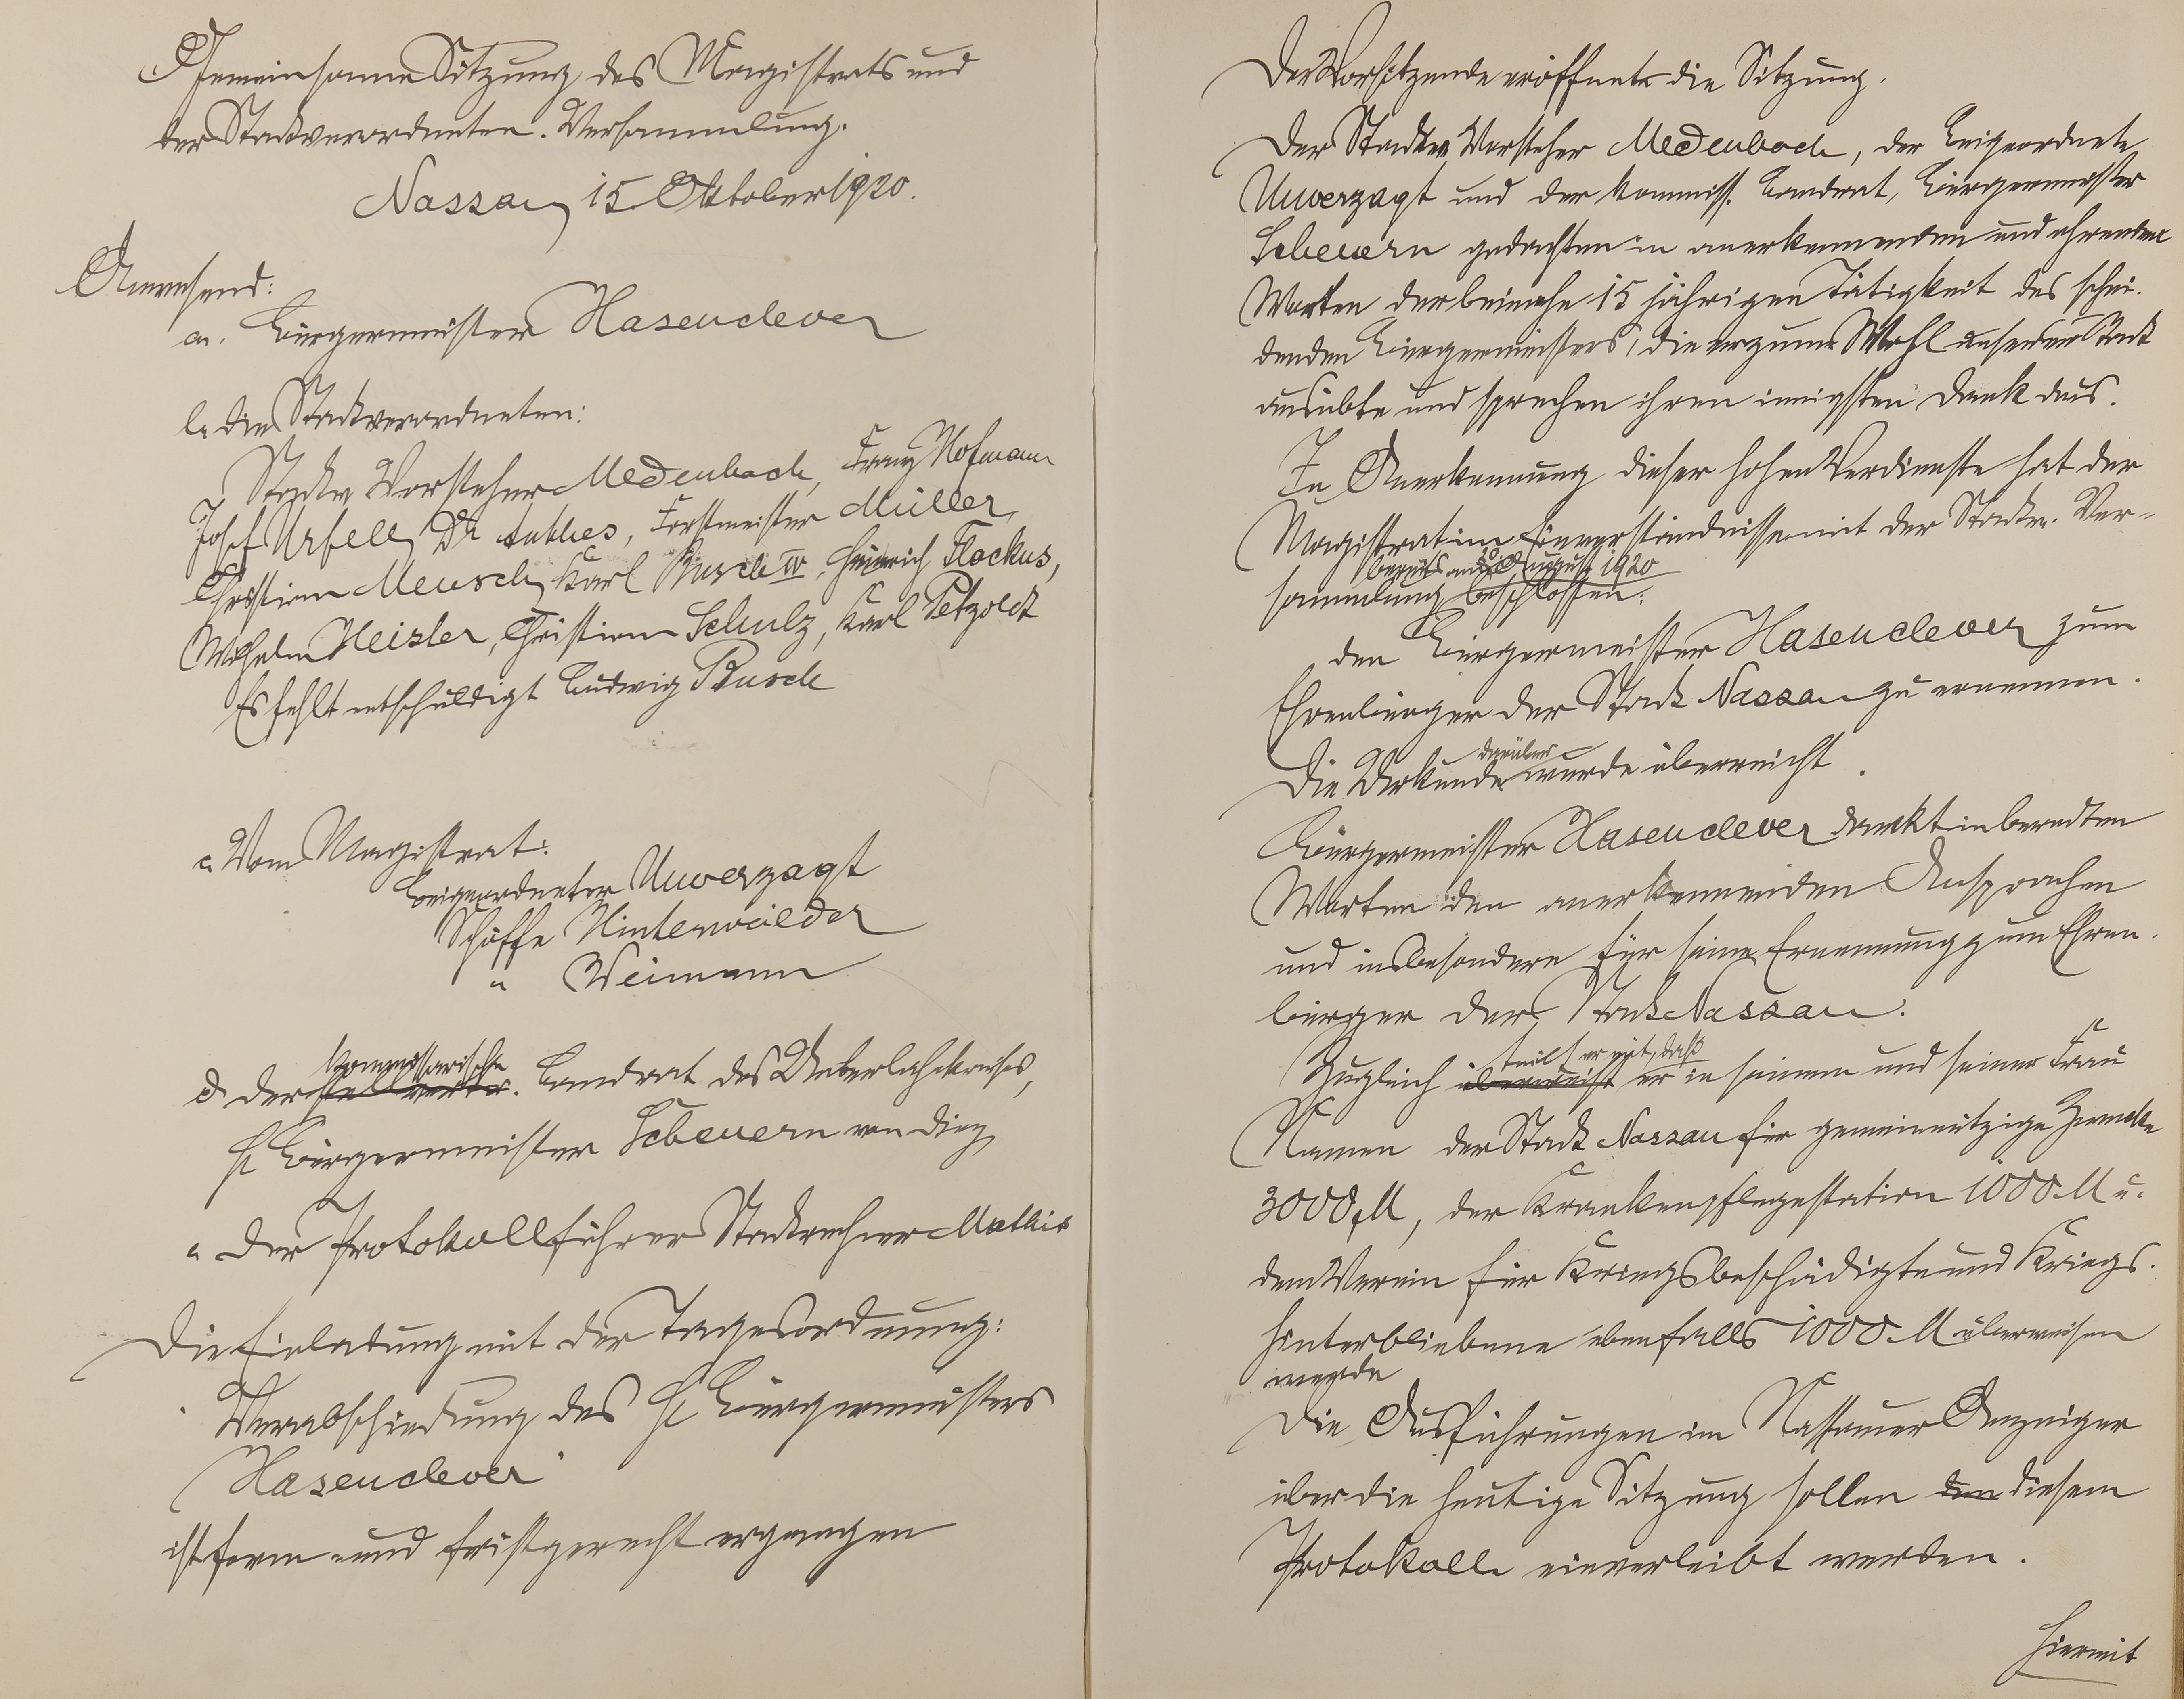 Gemeinsame Sitzung des Magistrats und
der Stadtverordneten-Versammlung.
Nassau, 15. Oktober 1920.
Anwesend:
a. Bürgermeister Hasenclever
b. die Stadtverordneten:
Stadtv. Vorsteher Medenbach, Franz Hofmann
Josef Urfell, Dr Anthes, Forstmeister Müller,
Christian Meusch, Karl Busch IV, Heinrich Flockus,
Wilhelm Heister, Christian Schulz, Karl Petzoldt
Es fehlt entschuldigt Ludwig Busch
c. Vom Magistrat:
Beigeordneter Unverzagt
Schöffe Hinterwälder
" Weimann
kommissarische
d. der stellvertr. Landrat des Unterlahnkreises,
H. Bürgermeister Scheuern von Diez,
e. der Protokollführer Stadtrechner Mathis
Die Einladung mit der Tagesordnung:
"Verabschiedung des H. Bürgermeisters
Hasenclever"
ist form- und fristgerecht ergangen
Der Vorsitzende eröffnete die Sitzung.
Der Stadtv. Vorsteher Medenbach, der Beigeordnete
Unverzagt und der kommiss. Landrat, Bürgermeister
Scheuern gedachten in anerkennenden und ehrenden
Worten der beinahe 15 jährigen Tätigkeit des schei-
denden Bürgermeisters, die er zum Wohl unserer Stadt
ausübte und sprechen ihren innigsten Dank aus.
In Anerkennung dieser hohen Verdienste hat der
Magistrat im Einverständnisse mit der Stadtv. Ver-
bereits am August 1920
sammlung beschlossen:
den Bürgermeister Hasenclever zum
Ehrenbürger der Stadt Nassau zu ernennen.
darüber
Die Urkunde wurde überreicht.
Bürgermeister Hasenclever dankt in beredten
Worten den anerkennenden Ansprachen
und insbesondere für seine Ernennung zum Ehren-
bürger der Stadt Nassau.
teilt er mit, daß
Zugleich überweist er in seinem und seiner Frau
Namen der Stadt Nassau für gemeinnützige Zwecke
3000 M, der Krankenpflegestation 1000 M u.
dem Verein für Kriegsbeschädigte und Kriegs-
hinterbliebene ebenfalls 1000 M überweisen
werde
Die Ausführungen im Nassauer Anzeiger
über die heutige Sitzung sollen dem diesem
Protokolle einverleibt werden.
Hiermit